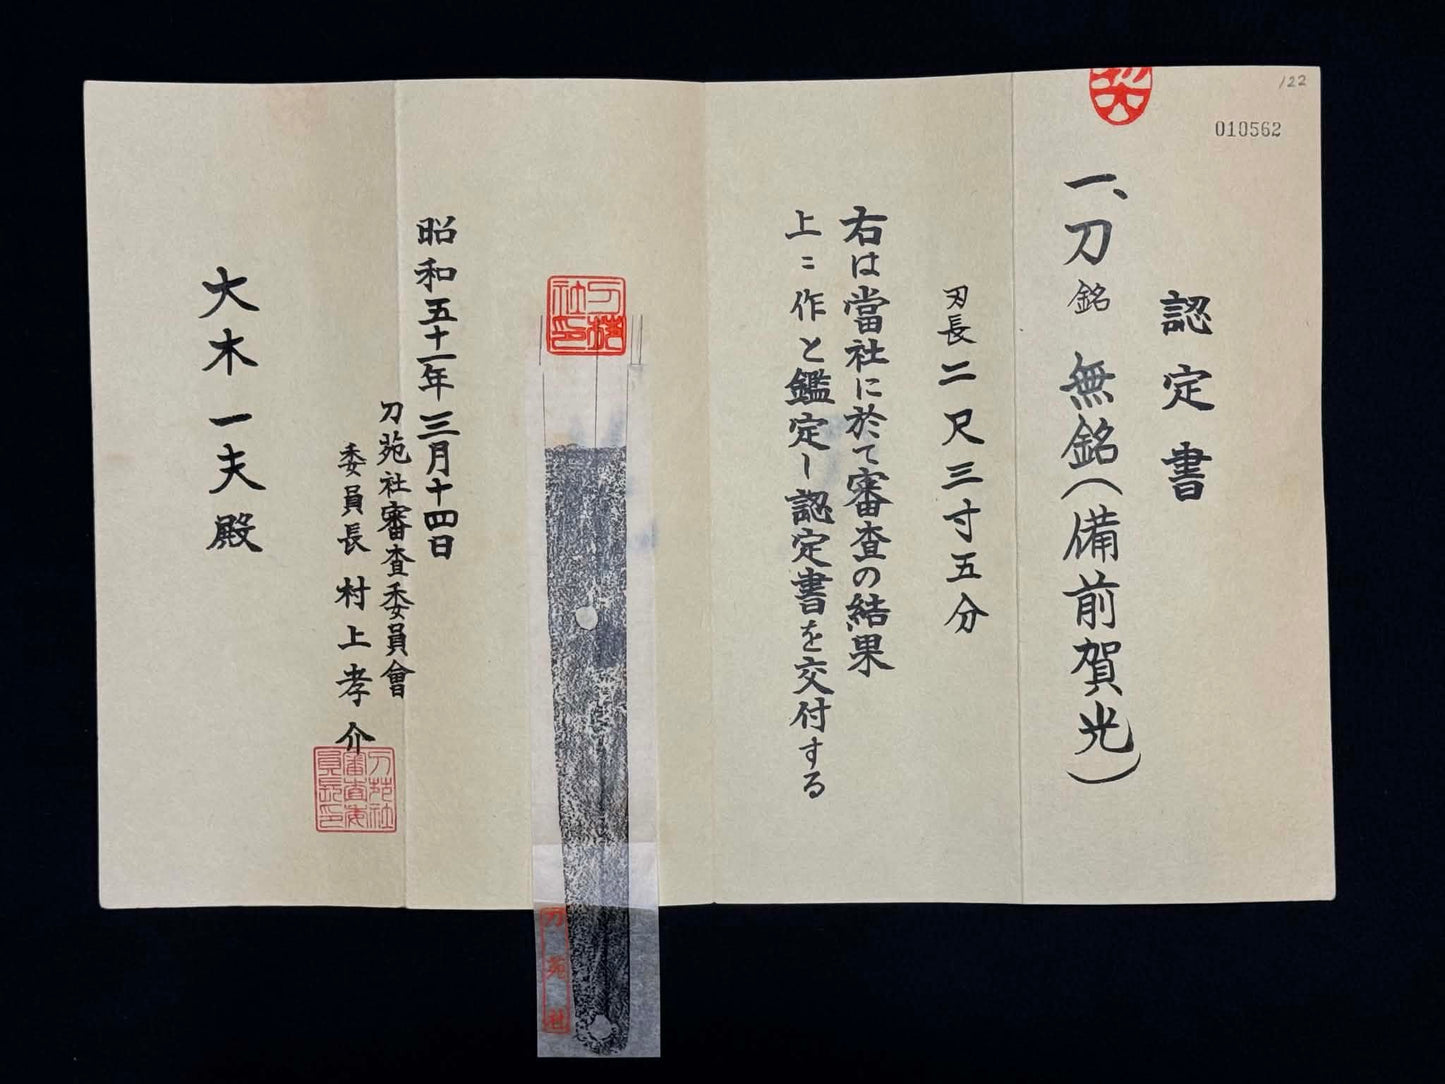 122
010562
認定書
一、刀 銘 無銘(備前賀光)
刃長 二尺三寸五分
右は當社に於て審査の結果
上ニ作と鑑定し認定書を交付する
刀苑社
昭和五十一年三月十四日
刀苑社審査委員會
委員長 村上孝介
刀苑社審査委員長印
大木一夫殿